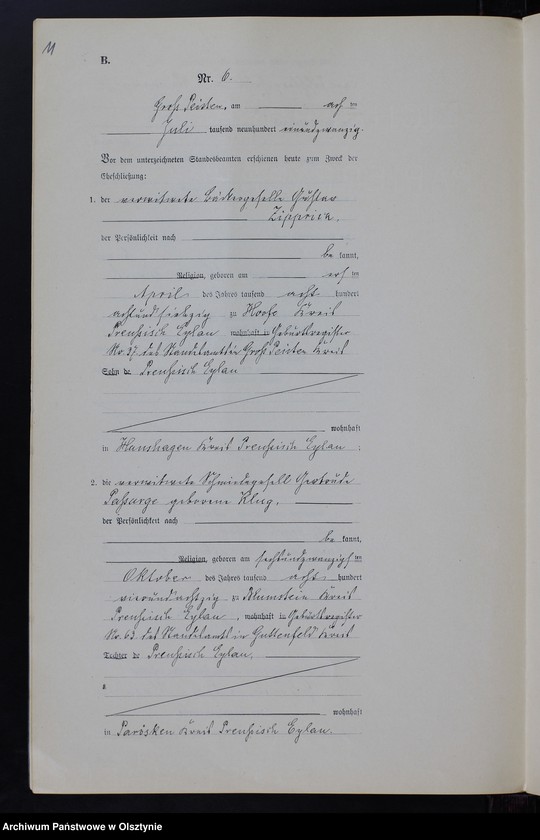 11
B.
Nr. 6.
Groß Peisten, am acht ten
Juli tausend neunhundert einundzwanzig.
Vor dem unterzeichneten Standesbeamten erschienen heute zum Zweck der
Eheschließung:
1. der verwitwete Bäckergeselle Gustav
Zipprick,
der Persönlichkeit nach
be kannt,
Religion, geboren am ersten
April des Jahres tausend acht hundert
achtundsiebzig zu Hoofe Kreis
Preußisch Eylau wohnhaft in Geburtsregister
Nr. 37 des Standesamts in Groß Peisten Kreis
Sohn de Preußisch Eylau
wohnhaft
in Hanshagen Kreis Preußisch Eylau ;
2. die verwitwete Schmiedegesell Gertrude
Passarge geborene Klug,
der Persönlichkeit nach
be kannt,
Religion, geboren am sechsundzwanzigsten
Oktober des Jahres tausend acht hundert
vierundachtzig zu Blumstein Kreis
Preußisch Eylau, wohnhaft in Geburtsregister
Nr. 63 des Standesamts in Guttenfeld Kreis
Tochter de Preußisch Eylau,
wohnhaft
in Parösken Kreis Preußisch Eylau.
Archiwum Państwowe w Olsztynie